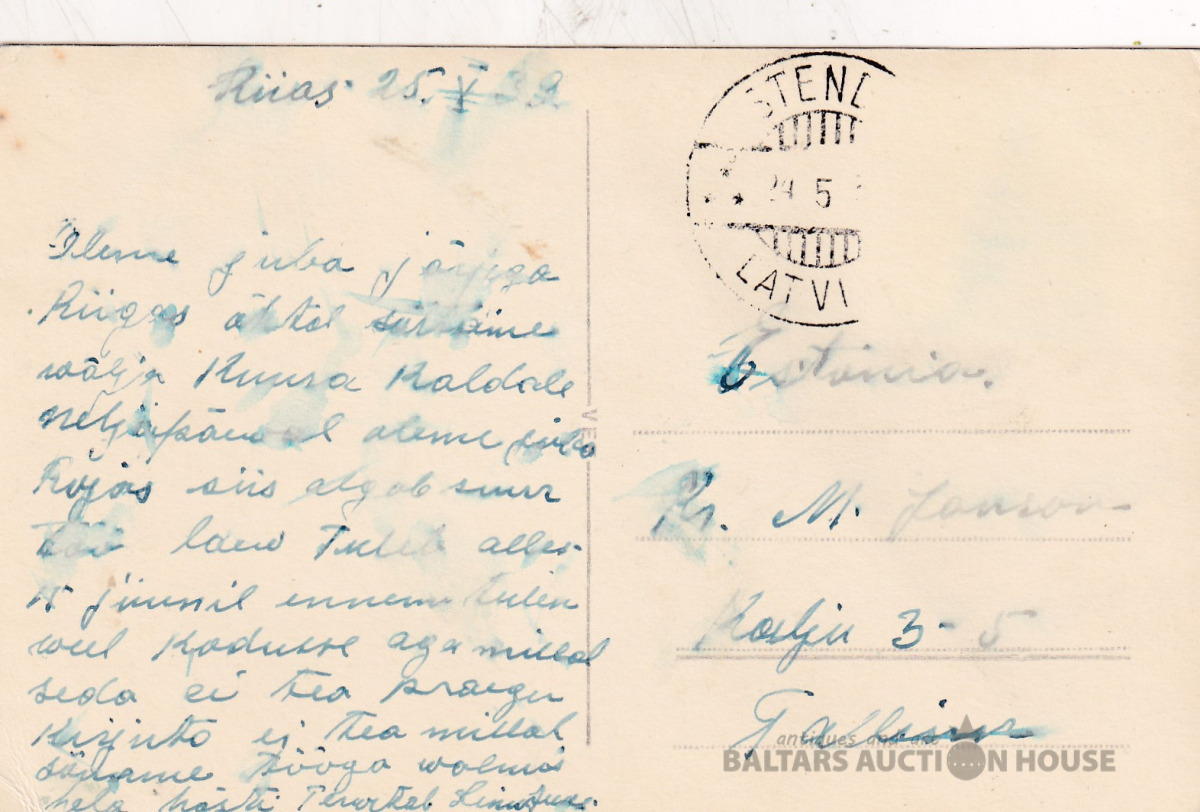 Riias 25. V 39
Oleme juba järjega
Riigas õhtal sõidame
wälja Kuura Kaldale
neljapäewal oleme juba
Rojas siis algab suur
töö laew Tuleb alles
15 juunil ennem tulen
weel Kodusse aga millal
seda ei tea praegu
Kirjuta ei tea millal
Tööga walmis
hästi Terwitab
STEND
24 5
LATVI
Estonia.
Pr. M. Janson
Kalju 3-5
Tallinn
antiques and art
BALTARS AUCTION HOUSE